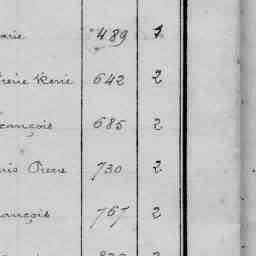 arie 489 1
René 642 2
ançois 685 2
is Pierre 730 2
ançois 767 2